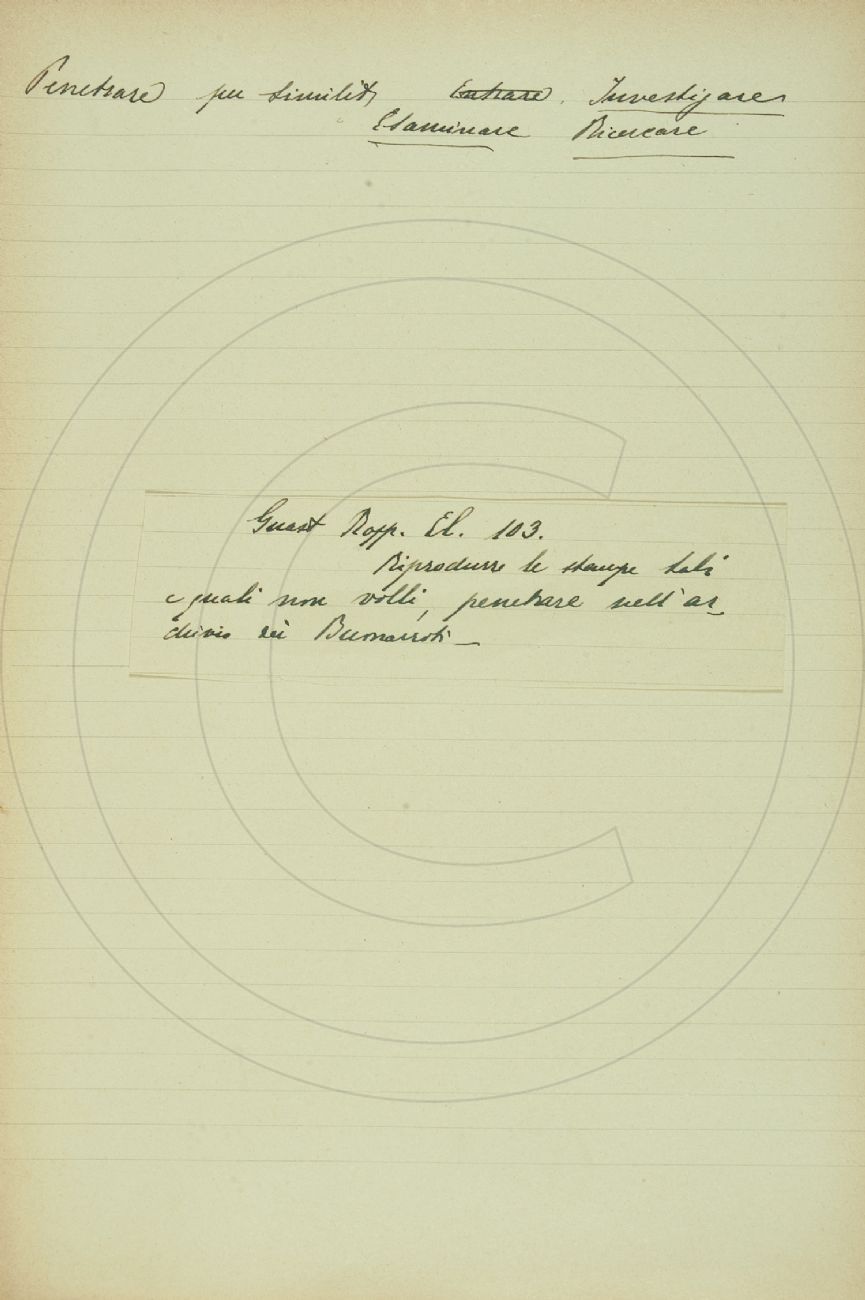 Penetrare per similit. Entrare. Investigare
Esaminare Ricercare
Guast Rapp. El. 103.
Riprodurre le stampe tali
e quali non volli, penetrare nell'ar_
chivio dei Buonarroti _